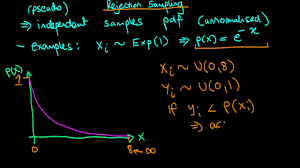 Rejection Sampling
(pseudo)
⇒ independent samples pdf (unnormalised)
- examples: Xi ~ Exp(1) ⇒ p(x) = e^-x
P(x)
1
0
8 ← ∞
x
xi ~ U(0,8)
yi ~ U(0,1)
if yi < P(xi)
⇒ ac